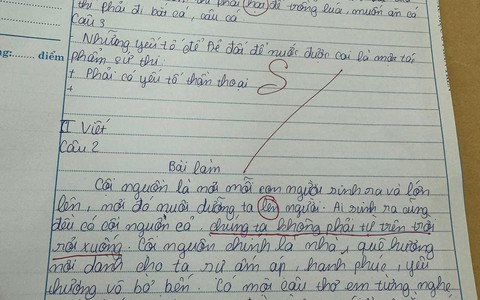 thì phải đi bài cả, câu cá
điểm
Câu 3
- Những yếu tố để Đẻ đất đẻ nước được coi là một tác
phẩm sử thi
+ Phải có yếu tố thần thoại
+
S
II Viết
Câu 2
Bài làm
Cội nguồn là nơi mỗi con người sinh ra và lớn
lên, nơi đó nuôi dưỡng ta lên người. Ai sinh ra cũng
đều có cội nguồn cả, chúng ta không phải từ trên trời
rơi xuống. Cội nguồn chính là nhà, quê hương
nơi dành cho ta sự ấm áp, hạnh phúc, yêu
thương vô bờ bến. Có một câu thơ em từng nghe